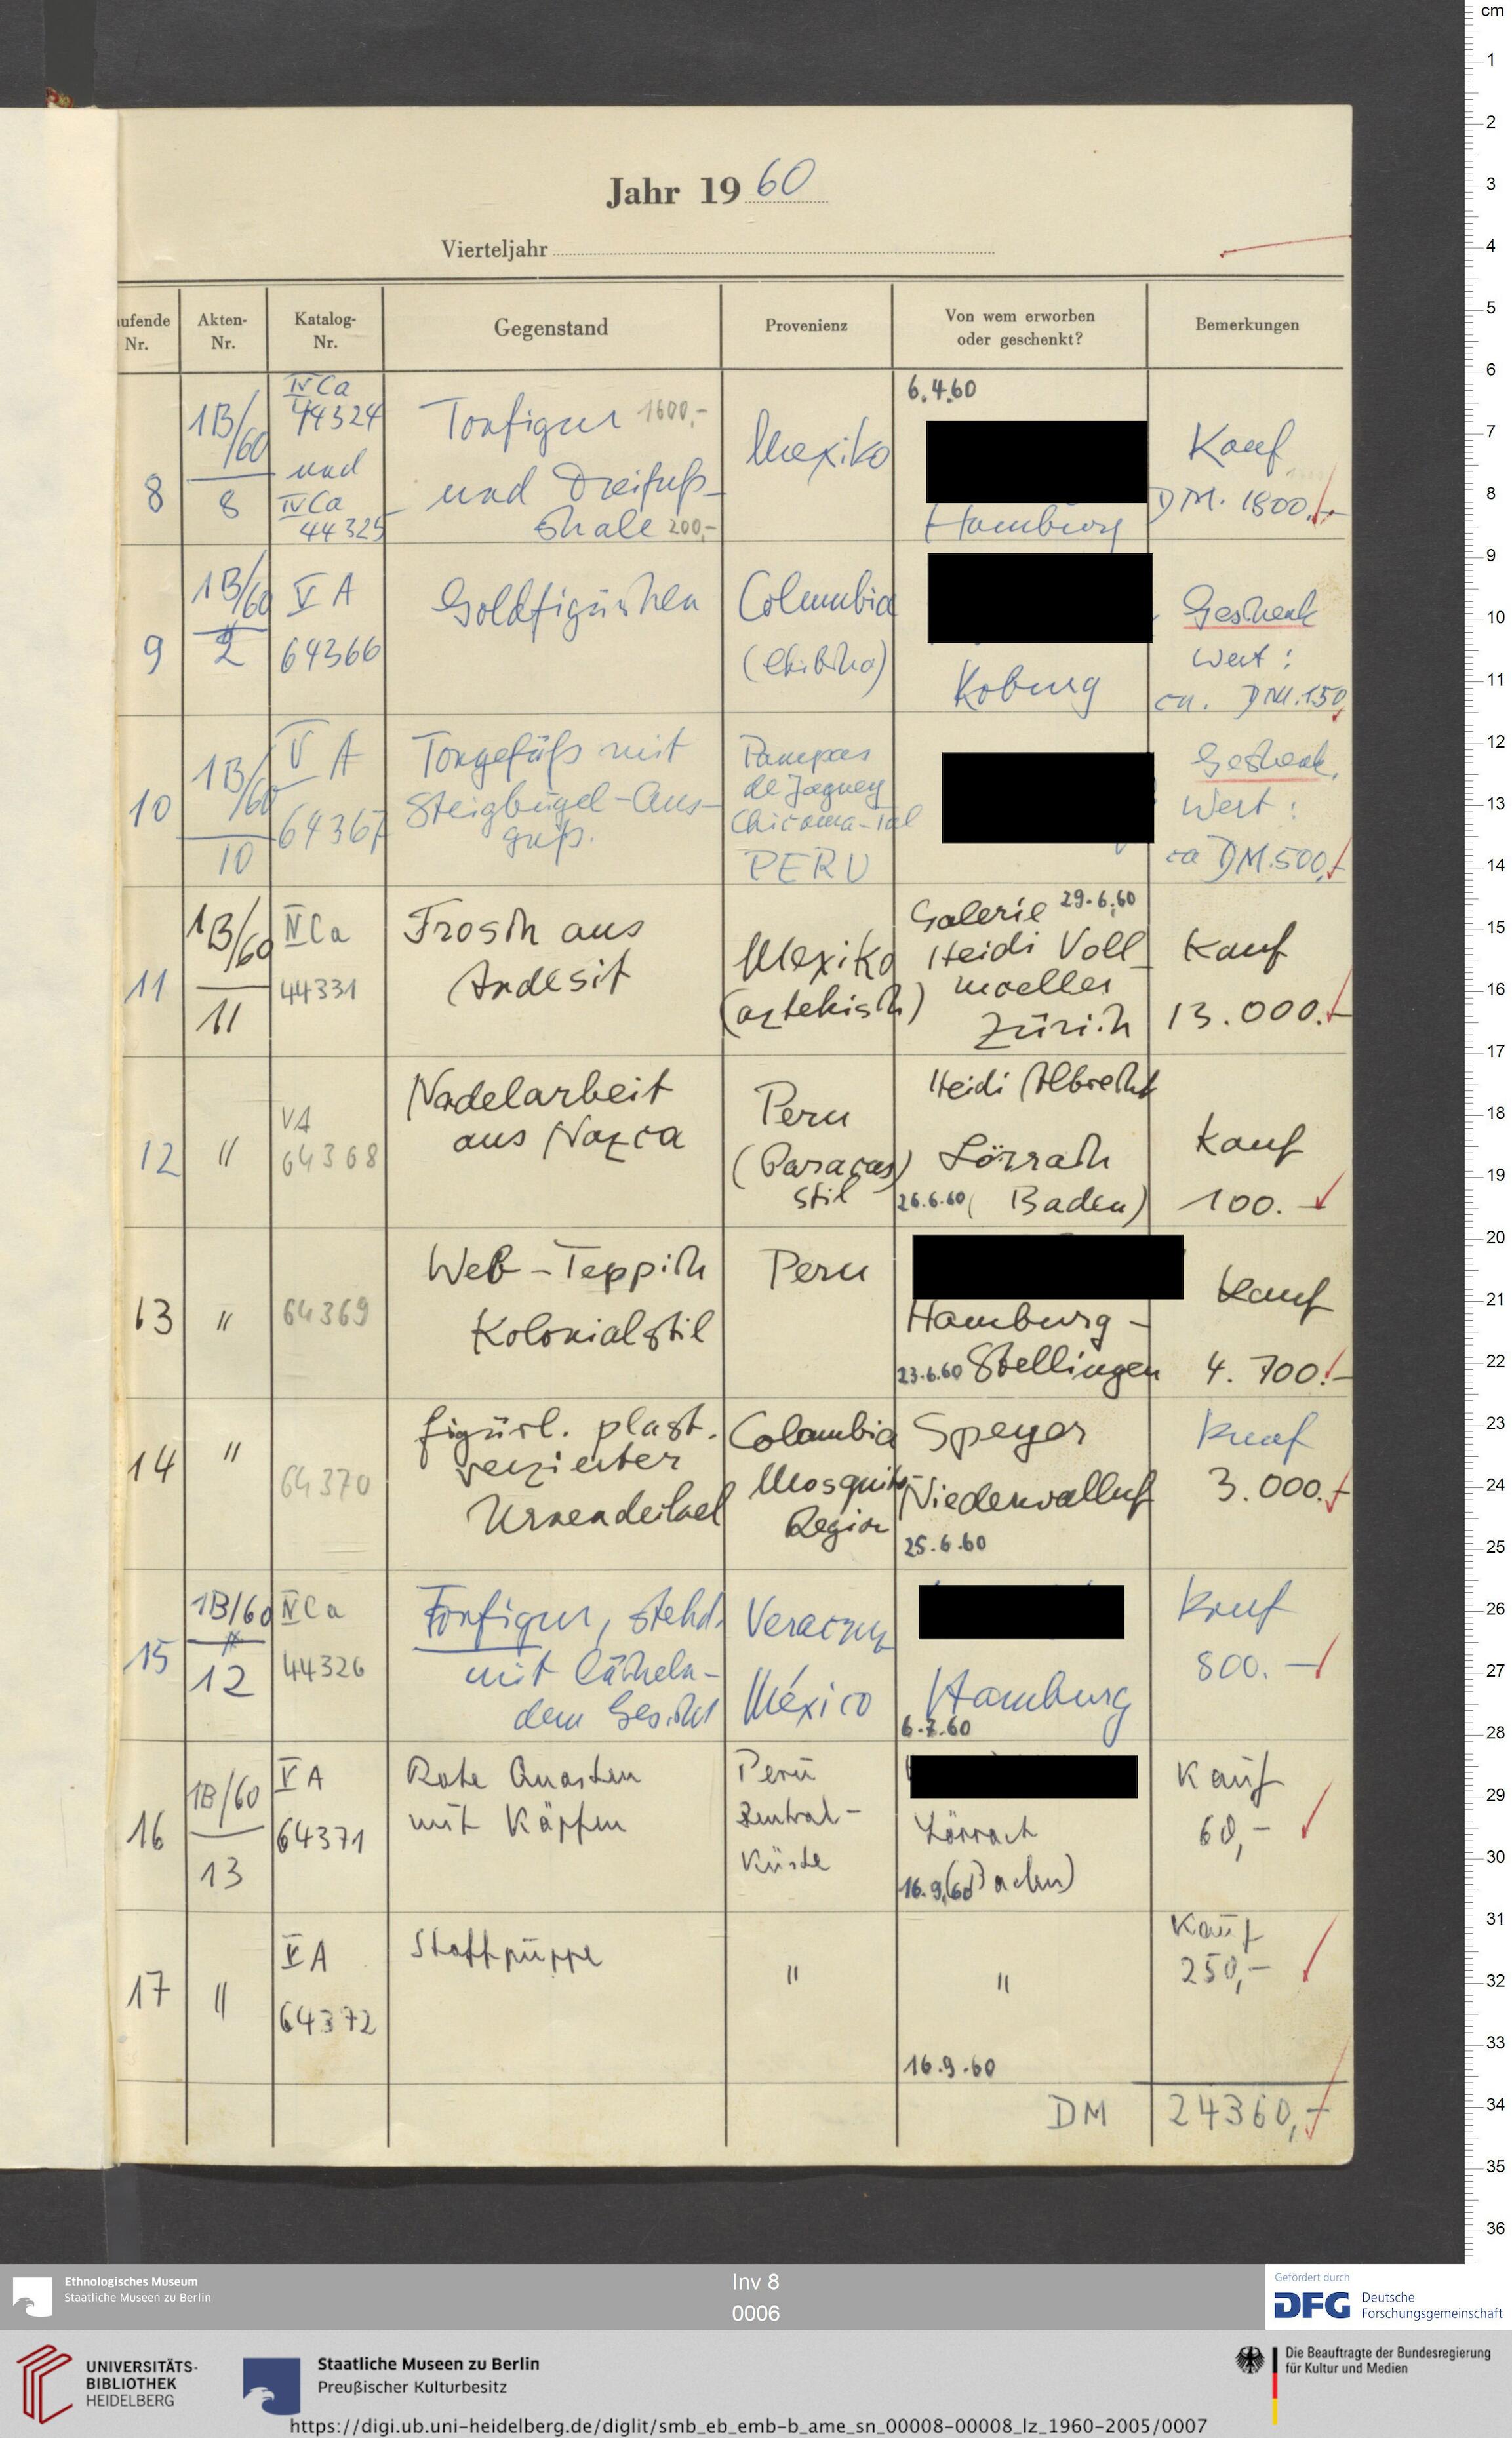 Jahr 19 60
Vierteljahr
ufende Nr.
Akten-Nr.
Katalog-Nr.
Gegenstand
Provenienz
Von wem erworben oder geschenkt?
Bemerkungen
8
1B/60
8
IV Ca
44324
und
IV Ca
44325
Tonfigur 1600,-
und Dreifuß-
schale 200,-
Mexiko
6.4.60
Hamburg
Kauf
DM. 1800.-
9
1B/60
2
V A
64366
Goldfigürchen
Columbia
(Chibcha)
Koburg
Geschenk
Wert:
ca. DM.150,
10
1B/60
10
V A
64367
Tongefäß mit
Steigbügel-Aus-
guß.
Pampas
de Jaguey
Chicama-Tal
PERU
Geschenk,
Wert:
ca DM.500,-
11
1B/60
11
IV Ca
44331
Frosch aus
Andesit
Mexiko
(aztekisch)
Galerie 29.6.60
Heidi Voll-
moeller
Zürich
Kauf
13.000.-
12
"
VA
64368
Nadelarbeit
aus Nazca
Peru
(Paracas)
Stil
Heidi Albrecht
Lörrach
26.6.60 (Baden)
Kauf
100.-
13
"
64369
Web-Teppich
Kolonialstil
Peru
Hamburg-
23.6.60 Stellingen
Kauf
4.700.-
14
"
64370
figürl. plast.
verzierter
Urnendeckel
Colombia
Mosquito-
Region
Speyer
Niederwalluf
25.6.60
Kauf
3.000.-
15
1B/60
12
IV Ca
44326
Tonfigur, stehd.
mit lächeln-
dem Gesicht
Veracruz
México
Hamburg
6.7.60
Kauf
800.-
16
1B/60
13
V A
64371
Rote Quasten
mit Köpfen
Peru
Zentral-
Küste
Lörrach
16.9.60 (Baden)
Kauf
60,-
17
"
V A
64372
Stoffpuppe
"
"
16.9.60
Kauf
250,-
DM 24360,-
cm
1
2
3
4
5
6
7
8
9
10
11
12
13
14
15
16
17
18
19
20
21
22
23
24
25
26
27
28
29
30
31
32
33
34
35
36
Ethnologisches Museum
Staatliche Museen zu Berlin
Inv 8
0006
Gefördert durch
DFG Deutsche
Forschungsgemeinschaft
UNIVERSITÄTS-
BIBLIOTHEK
HEIDELBERG
Staatliche Museen zu Berlin
Preußischer Kulturbesitz
Die Beauftragte der Bundesregierung
für Kultur und Medien
https://digi.ub.uni-heidelberg.de/diglit/smb_eb_emb-b_ame_sn_00008-00008_lz_1960-2005/0007